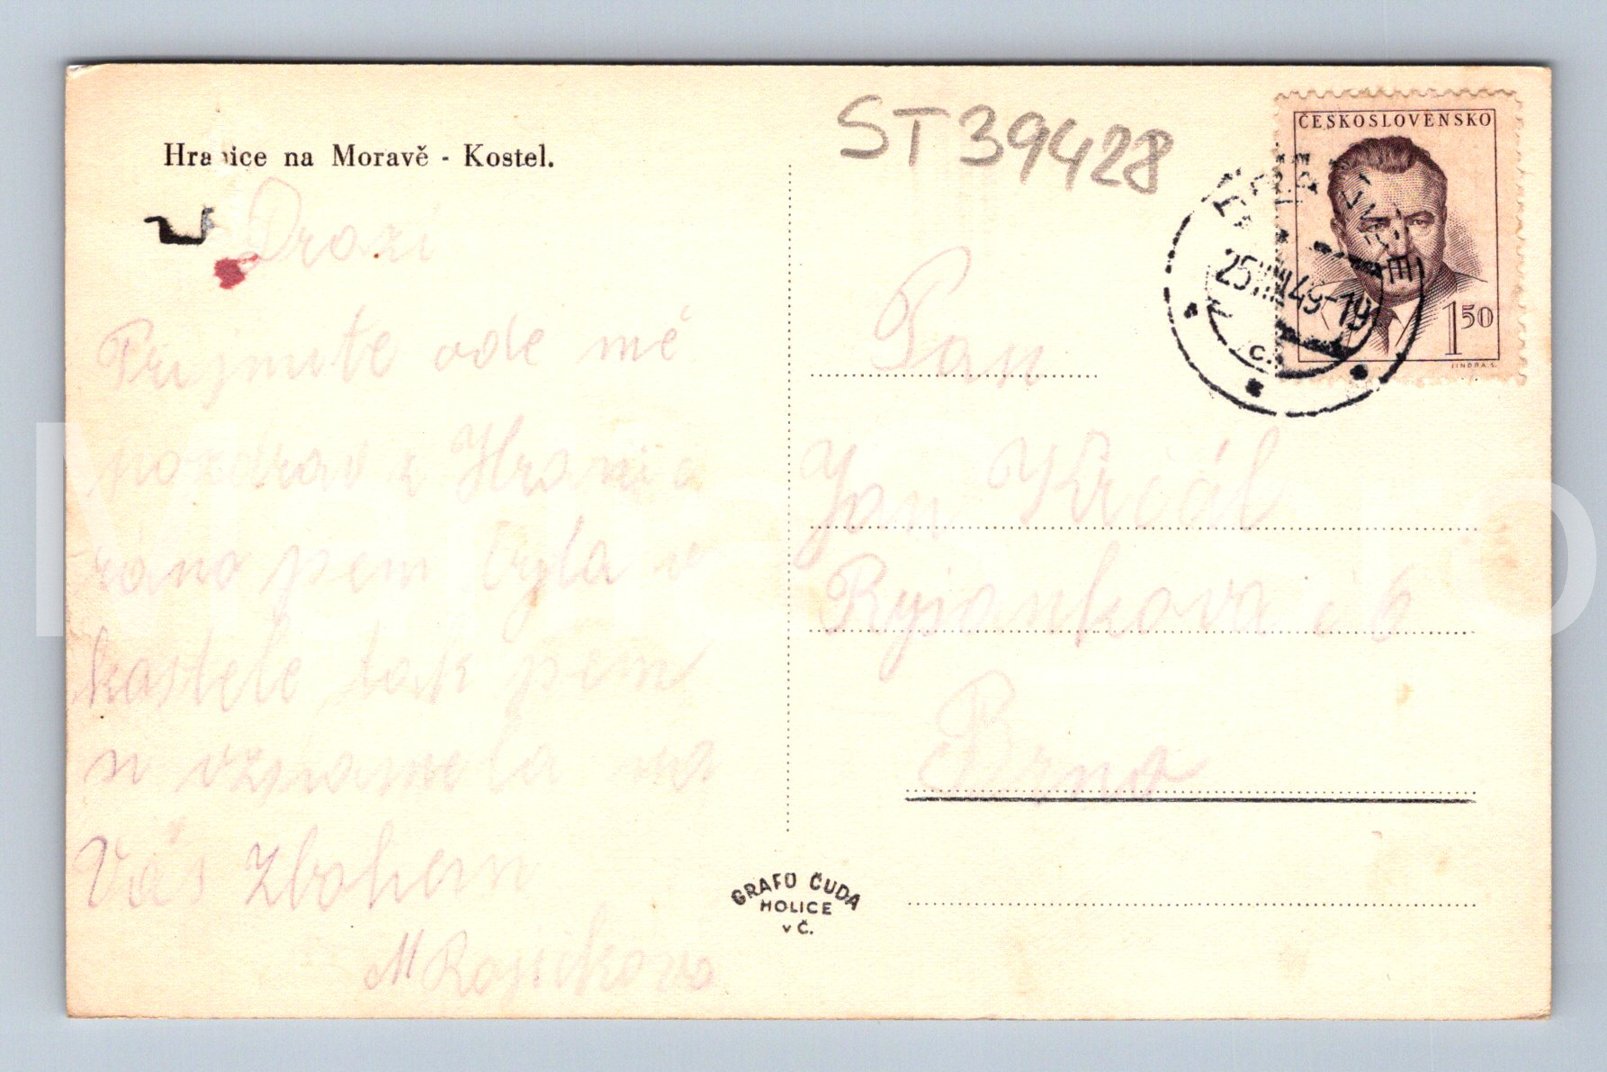 Hranice na Moravě - Kostel.
ST 39428
ČESKOSLOVENSKO
1 50
JINDRA S.
25.VIII.49-19
Drazí
Přijmite ode mé
pozdrav z Hranic
ráno jsem byla v
kostele tak jsem
vzpomela na
Vás Zbohem
M
Pan
Jan Král
č 6
Brno
GRAFO ČUDA
HOLICE
v Č.